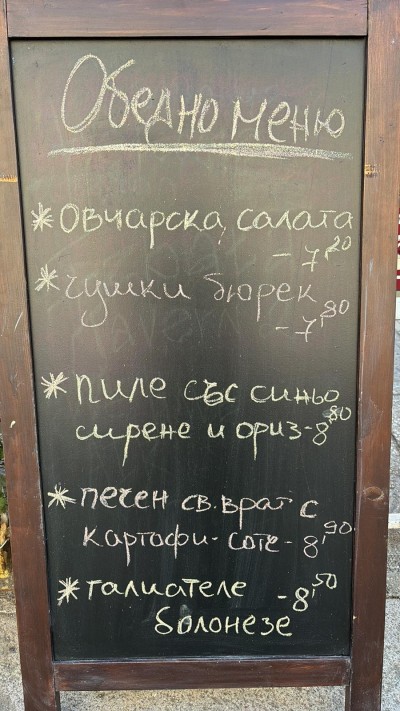 Обедно меню
* Овчарска салата
- 7,20
* чушки бюрек
- 7,80
* пиле със синьо
сирене и ориз - 8,80
* печен св. врат с
картофи - соте - 8,90
* талиателе - 8,50
болонезе